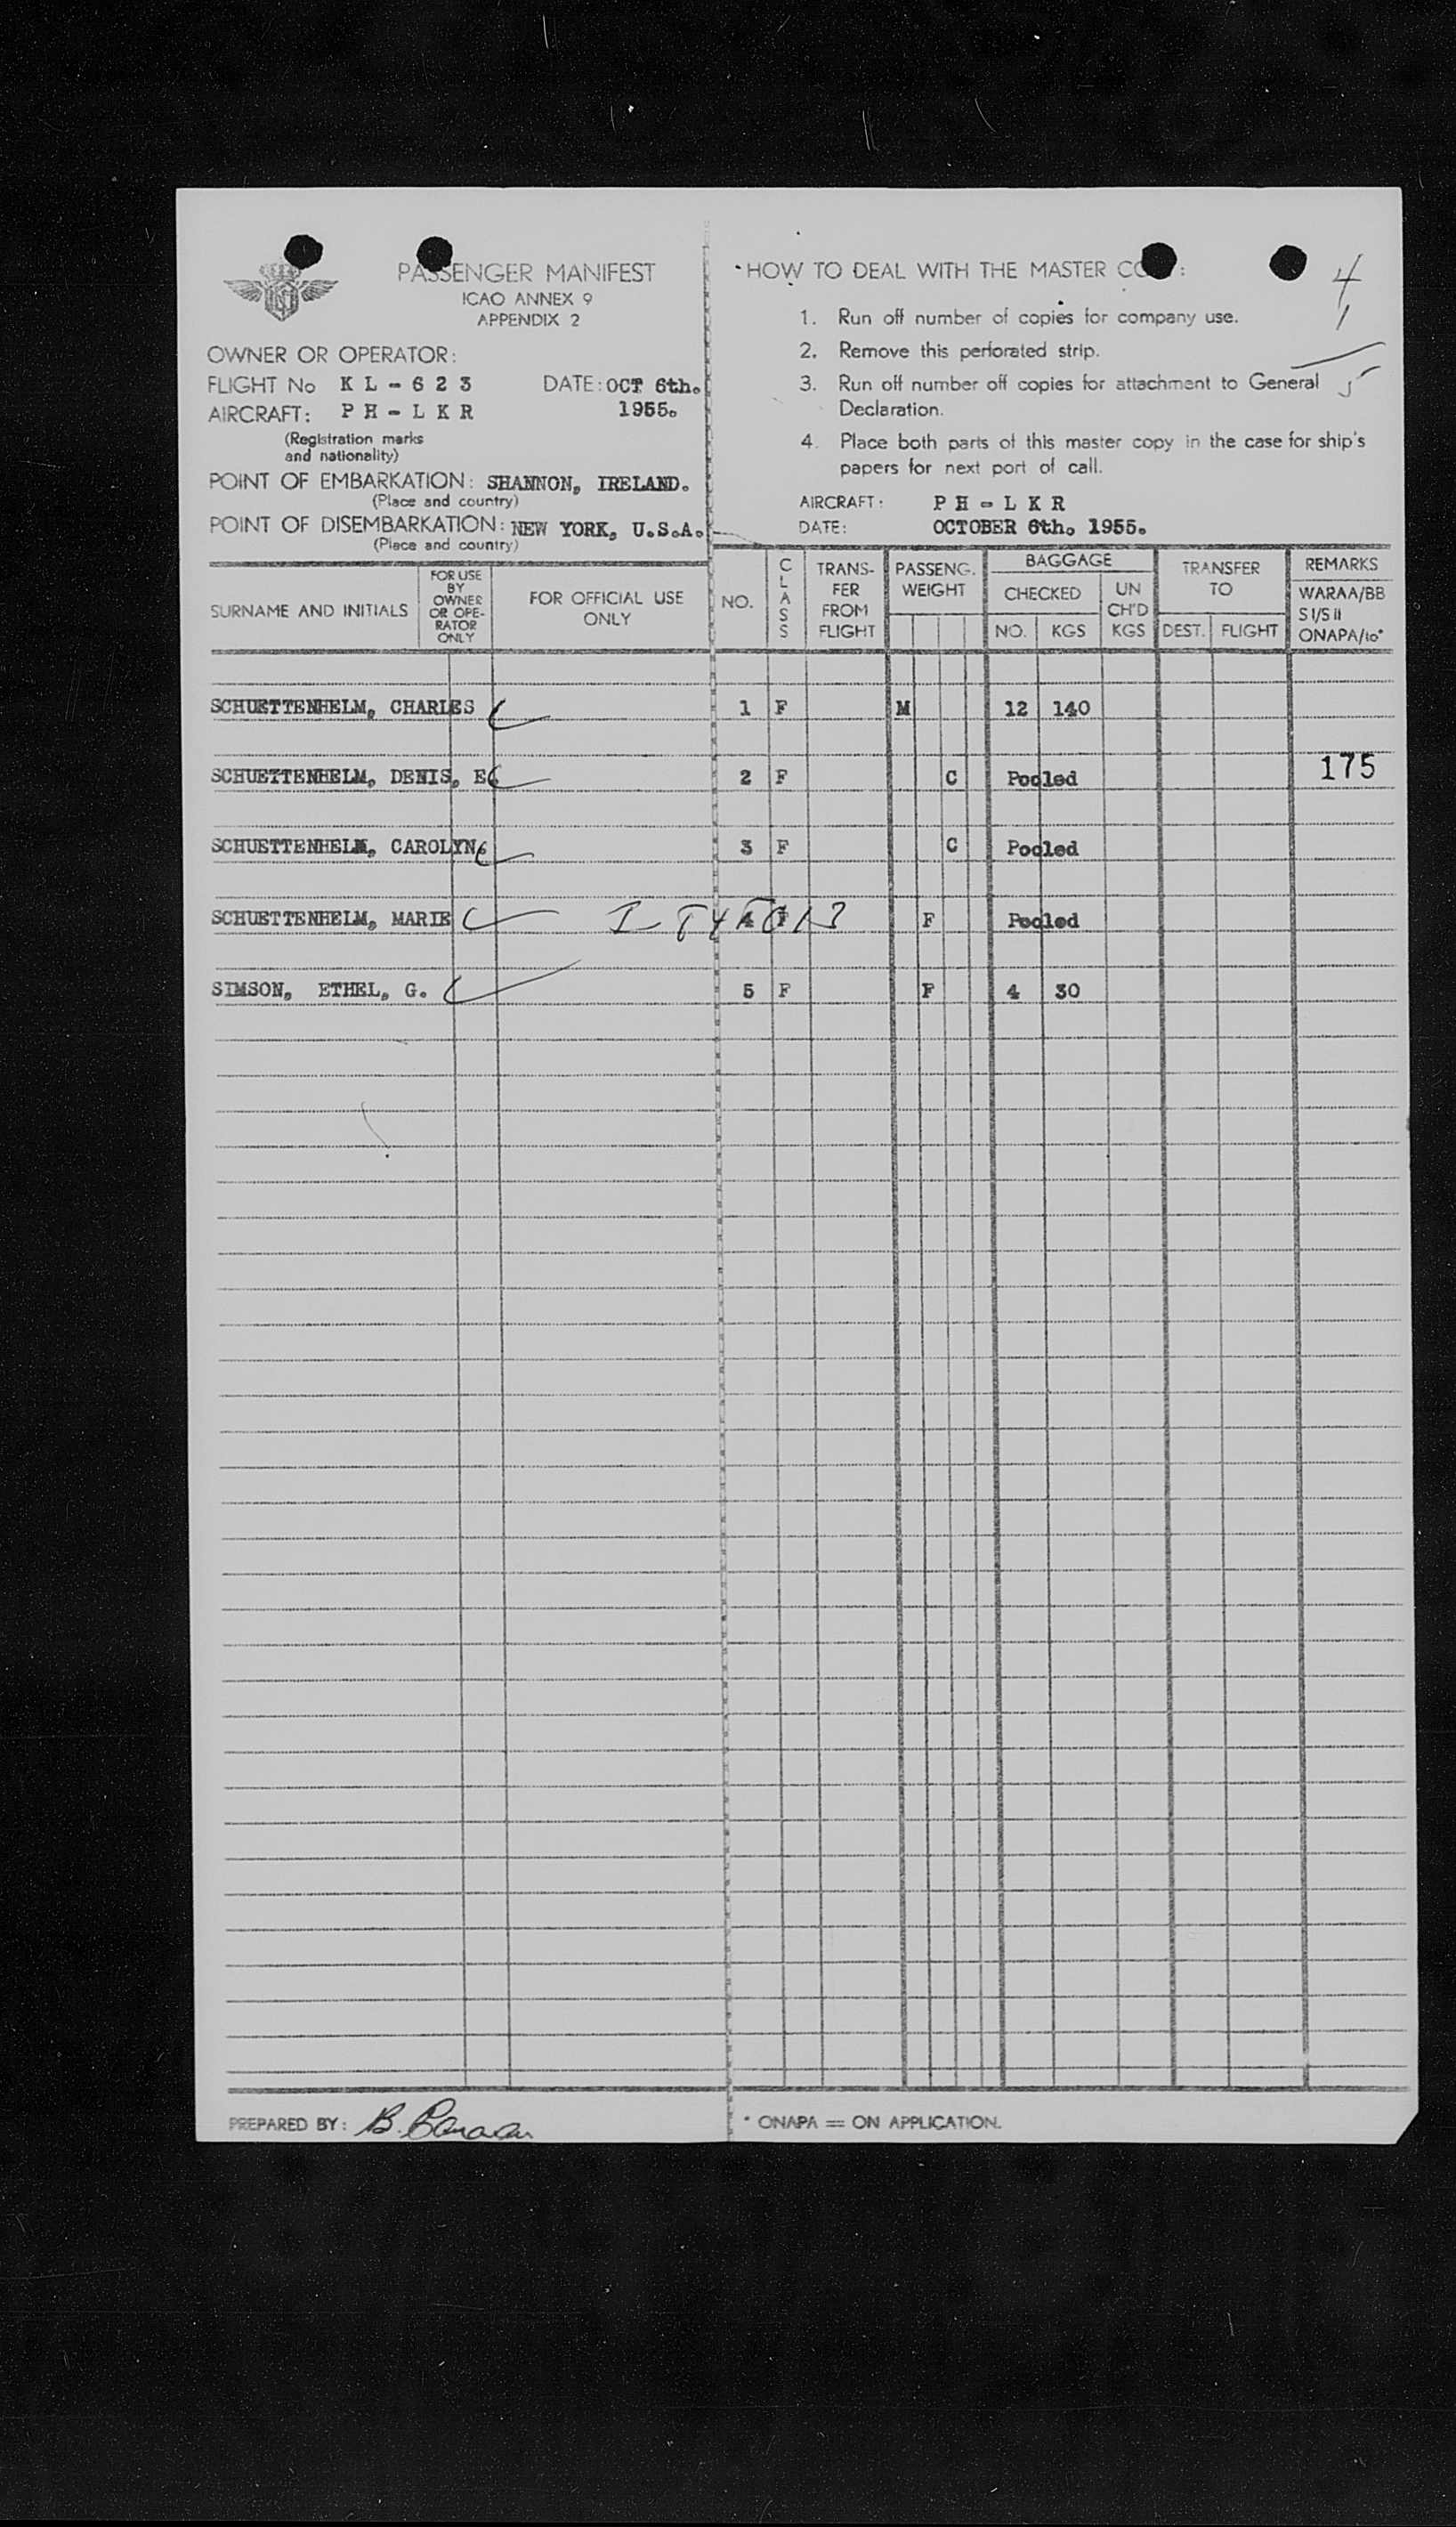 PASSENGER MANIFEST
ICAO ANNEX 9
APPENDIX 2
OWNER OR OPERATOR:
FLIGHT No KL-623 DATE: OCT 6th.
AIRCRAFT: PH-LKR 1955.
(Registration marks
and nationality)
POINT OF EMBARKATION: SHANNON, IRELAND.
(Place and country)
POINT OF DISEMBARKATION: NEW YORK, U.S.A.
(Place and country)
HOW TO DEAL WITH THE MASTER :
4
1
5
1. Run off number of copies for company use.
2. Remove this perforated strip.
3. Run off number off copies for attachment to General
Declaration.
4. Place both parts of this master copy in the case for ship's
papers for next port of call.
AIRCRAFT: PH-LKR
DATE: OCTOBER 6th. 1955.
SURNAME AND INITIALS
FOR USE
BY
OWNER
OR OPE-
RATOR
ONLY
FOR OFFICIAL USE
ONLY
NO.
CLASS
TRANS-
FER
FROM
FLIGHT
PASSENG.
WEIGHT
BAGGAGE
CHECKED
NO. KGS
UN
CH'D
KGS
TRANSFER
TO
DEST. FLIGHT
REMARKS
WARAA/BB
SI/SII
ONAPA/to*
SCHUETTENHELM, CHARLES 1 F M 12 140
SCHUETTENHELM, DENIS, E. 2 F C Pooled 175
SCHUETTENHELM, CAROLYN. 3 F C Pooled
SCHUETTENHELM, MARIE 4 F F Pooled
SIMSON, ETHEL, G. 5 F F 4 30
PREPARED BY: B.
* ONAPA = ON APPLICATION.